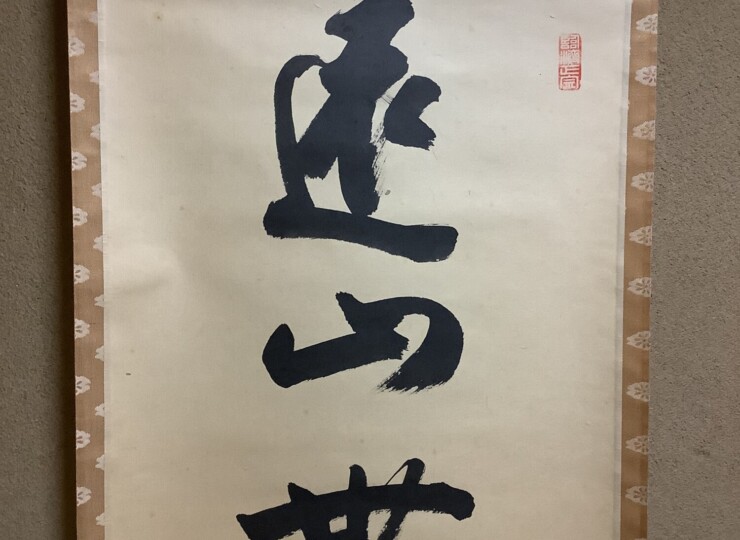 遠山無